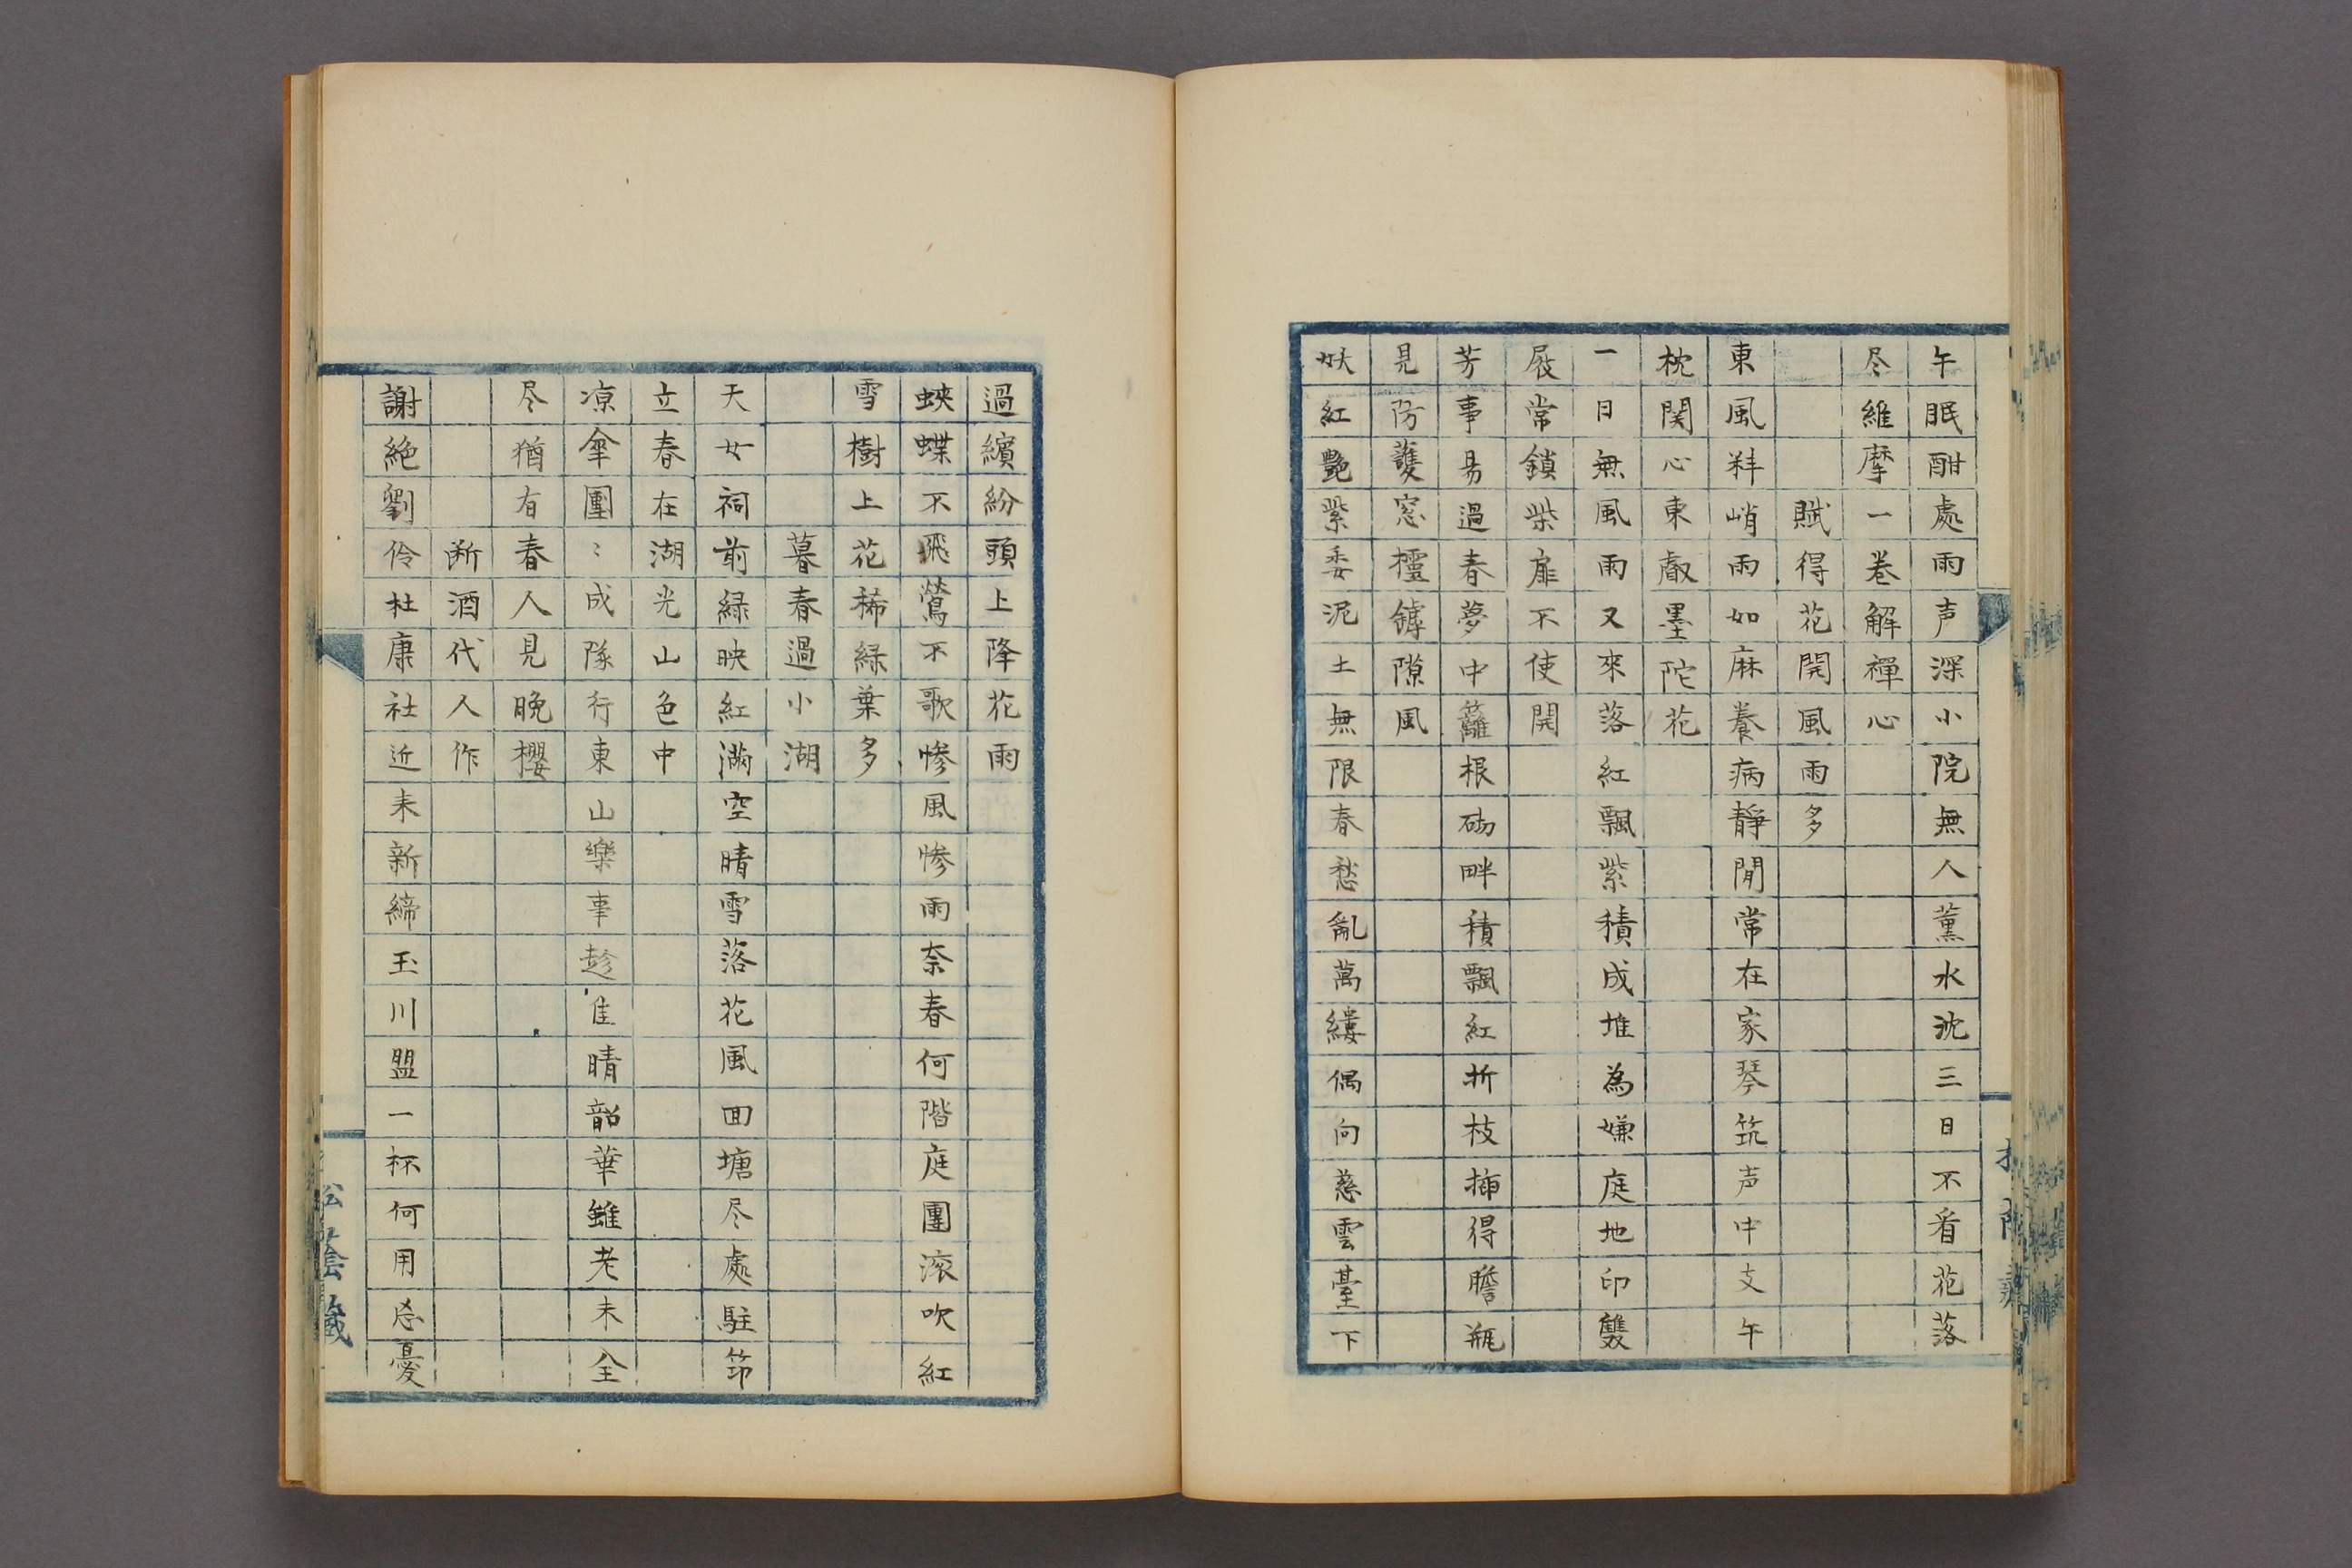 午眠酣處雨声深小院無人薫水沈三日不看花落
尽維摩一巻解禪心
賦得花開風雨多
東風料峭雨如麻養病靜閒常在家琴筑声中支午
枕関心東叡墨陀花
一日無風雨又來落紅飄紫積成堆為嫌庭地印雙
屐常鎖柴扉不使開
芳事易過春夢中籬根砌畔積飄紅折枝揷得膽瓶
見防護窓櫺罅隙風
妖紅艷紫委泥土無限春愁亂萬縷偶向慈雲臺下
過繽紛頭上降花雨
蛺蝶不飛鶯不歌惨風惨雨奈春何階庭團滚吹紅
雪樹上花稀綠葉多
暮春過小湖
天女祠前緑映紅満空晴雪落花風囬塘尽處駐筇
立春在湖光山色中
凉傘團〻成隊行東山樂事趁佳晴韶華雖老未全
尽猶有春人見晩櫻
断酒代人作
謝絶劉伶杜康社近来新締玉川盟一杯何用忘憂
松蔭